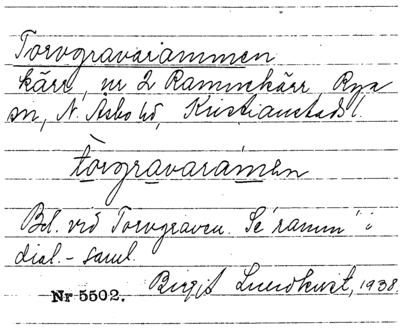 Torvgravarammen
kärr, nr 2 Rammekärr, Rya
sn, N. Åsbo hd, Kristianstads l.
tòrgravaramen
Bel. vid Torvgraven. Se "ramm" i
dial.-saml.
Nr 5502. Birgit Lundkvist, 1938.